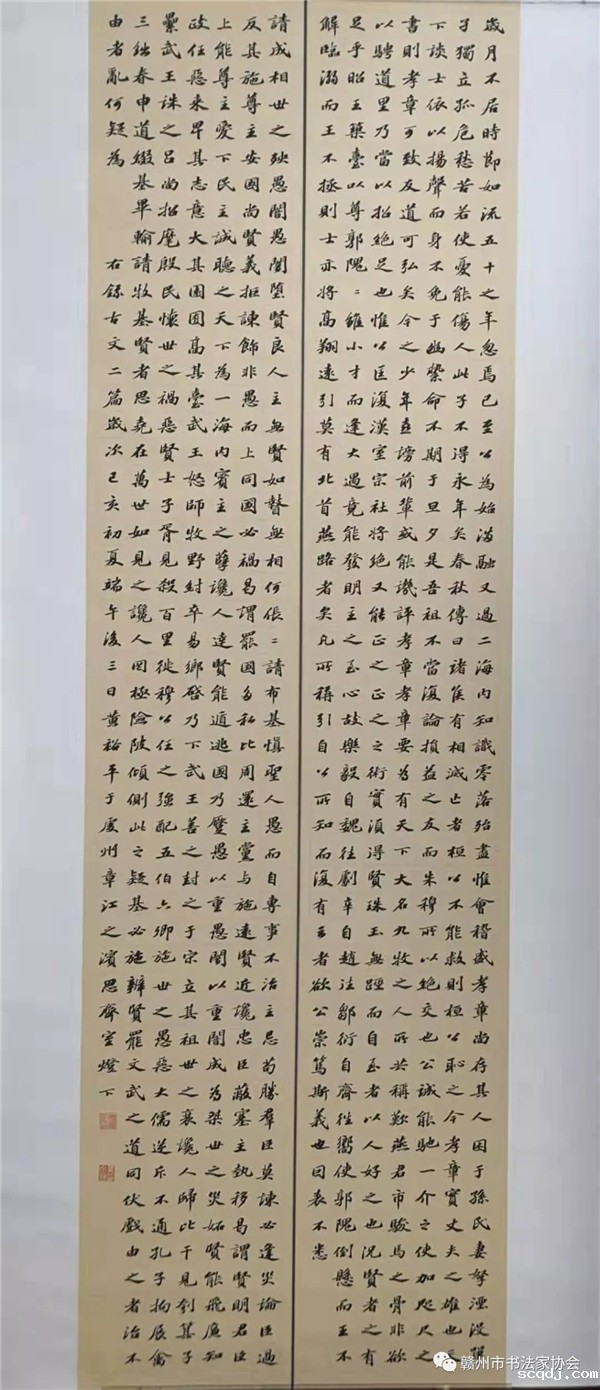 歲月不居時節如流五十之年忽焉已至公為始滿融又過二海內知識零落殆盡惟會稽盛孝章尚存其人困于孫氏妻孥湮沒單
子獨立孤危愁苦若使憂能傷人此子不得永年矣春秋傳曰諸侯有相滅亡者桓公不能救則桓公恥之今孝章實丈夫之雄也天
下談士依以揚聲而身不免于幽縶命不期于旦夕是吾祖不當復論損益之友而朱穆所以絕交也公誠能馳一介之使加咫尺之
書則孝章可致友道可弘矣今之少年喜謗前輩或能譏評孝章孝章要為有天下大名九牧之人所共稱歎燕君市駿馬之骨非欲
以騁道里乃當以招絕足也惟公匡復漢室宗社將絕又能正之正之之術實須得賢珠玉無踁而自至者以人好之也況賢者之有
足乎昭王築臺以尊郭隗〻雖小才而逢大遇竟能發明主之至心故樂毅自魏往劇辛自趙往鄒衍自齊往嚮使郭隗倒懸而王不
解臨溺而王不拯則士亦將高翔遠引莫有北首燕路者矣凡所稱引自公所知而復有云者欲公崇篤斯義也因表不悉
請成相世之殃愚闇愚闇墮賢良人主無賢如瞽無相何倀〻請布基慎聖人愚而自專事不治主忌苟勝羣臣莫諫必逢災論臣過
反其施尊主安國尚賢義拒諫飾非愚而上同國必禍曷謂罷國多私比周還主黨與施遠賢近讒忠臣蔽塞主埶移曷謂賢明君臣
上能尊主愛下民主誠聽之天下為一海內賓主之孽讒人達賢能遁逃國乃蹷愚以重愚闇以重闇成為桀世之災妬賢能飛廉知
政任惡來卑其志意大其園囿高其臺武王怒師牧野紂卒易鄉啓乃下武王善之封之于宋立其祖世之衰讒人歸比干見刳箕子
纍武王誅之呂尚招麾殷民懷世之禍惡賢士子胥見殺百里徙穆公任之強配五伯六卿施世之愚惡大儒逆斥不通孔子拘展禽
三絀春申道綴基畢輸請牧基賢者思堯在萬世如見之讒人罔極險陂傾側此之疑基必施辨賢罷文武之道同伏戲由之者治不
由者亂何疑為 右錄古文二篇歲次己亥初夏端午後三日黃裕平于虔州章江之濱思齊室燈下
赣州市书法家协会
scqdj.com